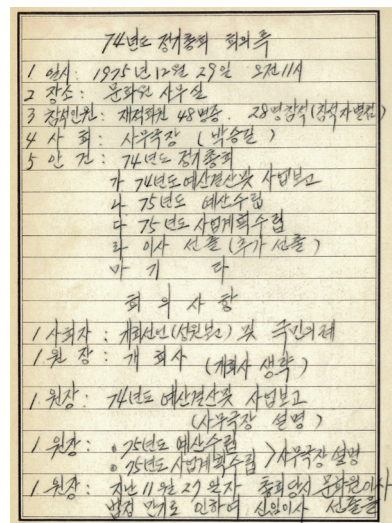 74년도 정기총회 회의록
1 일시: 1975년 12월 29일 오전 11시
2 장소: 문화원 사무실
3 참석인원: 재적회원 48명중. 28명참석 (참석자별첨)
4 사 회: 사무국장 (박승일)
5 안 건: 74년도 정기총회
가 74년도예산결산및 사업보고
나 75년도 예산수립
다 75년도 사업계획수립
라 이사 선출 (추가 선출)
마 기 타
회 의 사 항
1 사회자: 개회선언(성원보고) 및 국민의례
1 원 장: 개 회사 (개회사 생략)
1 원장: 74년도 예산결산및 사업보고
(사무국장 설명)
1 원장: o 75년도 예산수립
o 75년도사업계획수립 > 사무국장 설명
1 원장: 지난 11월 27일자 총회당시 문화원이사
법정 만기로 인하여 신임이사 선출을